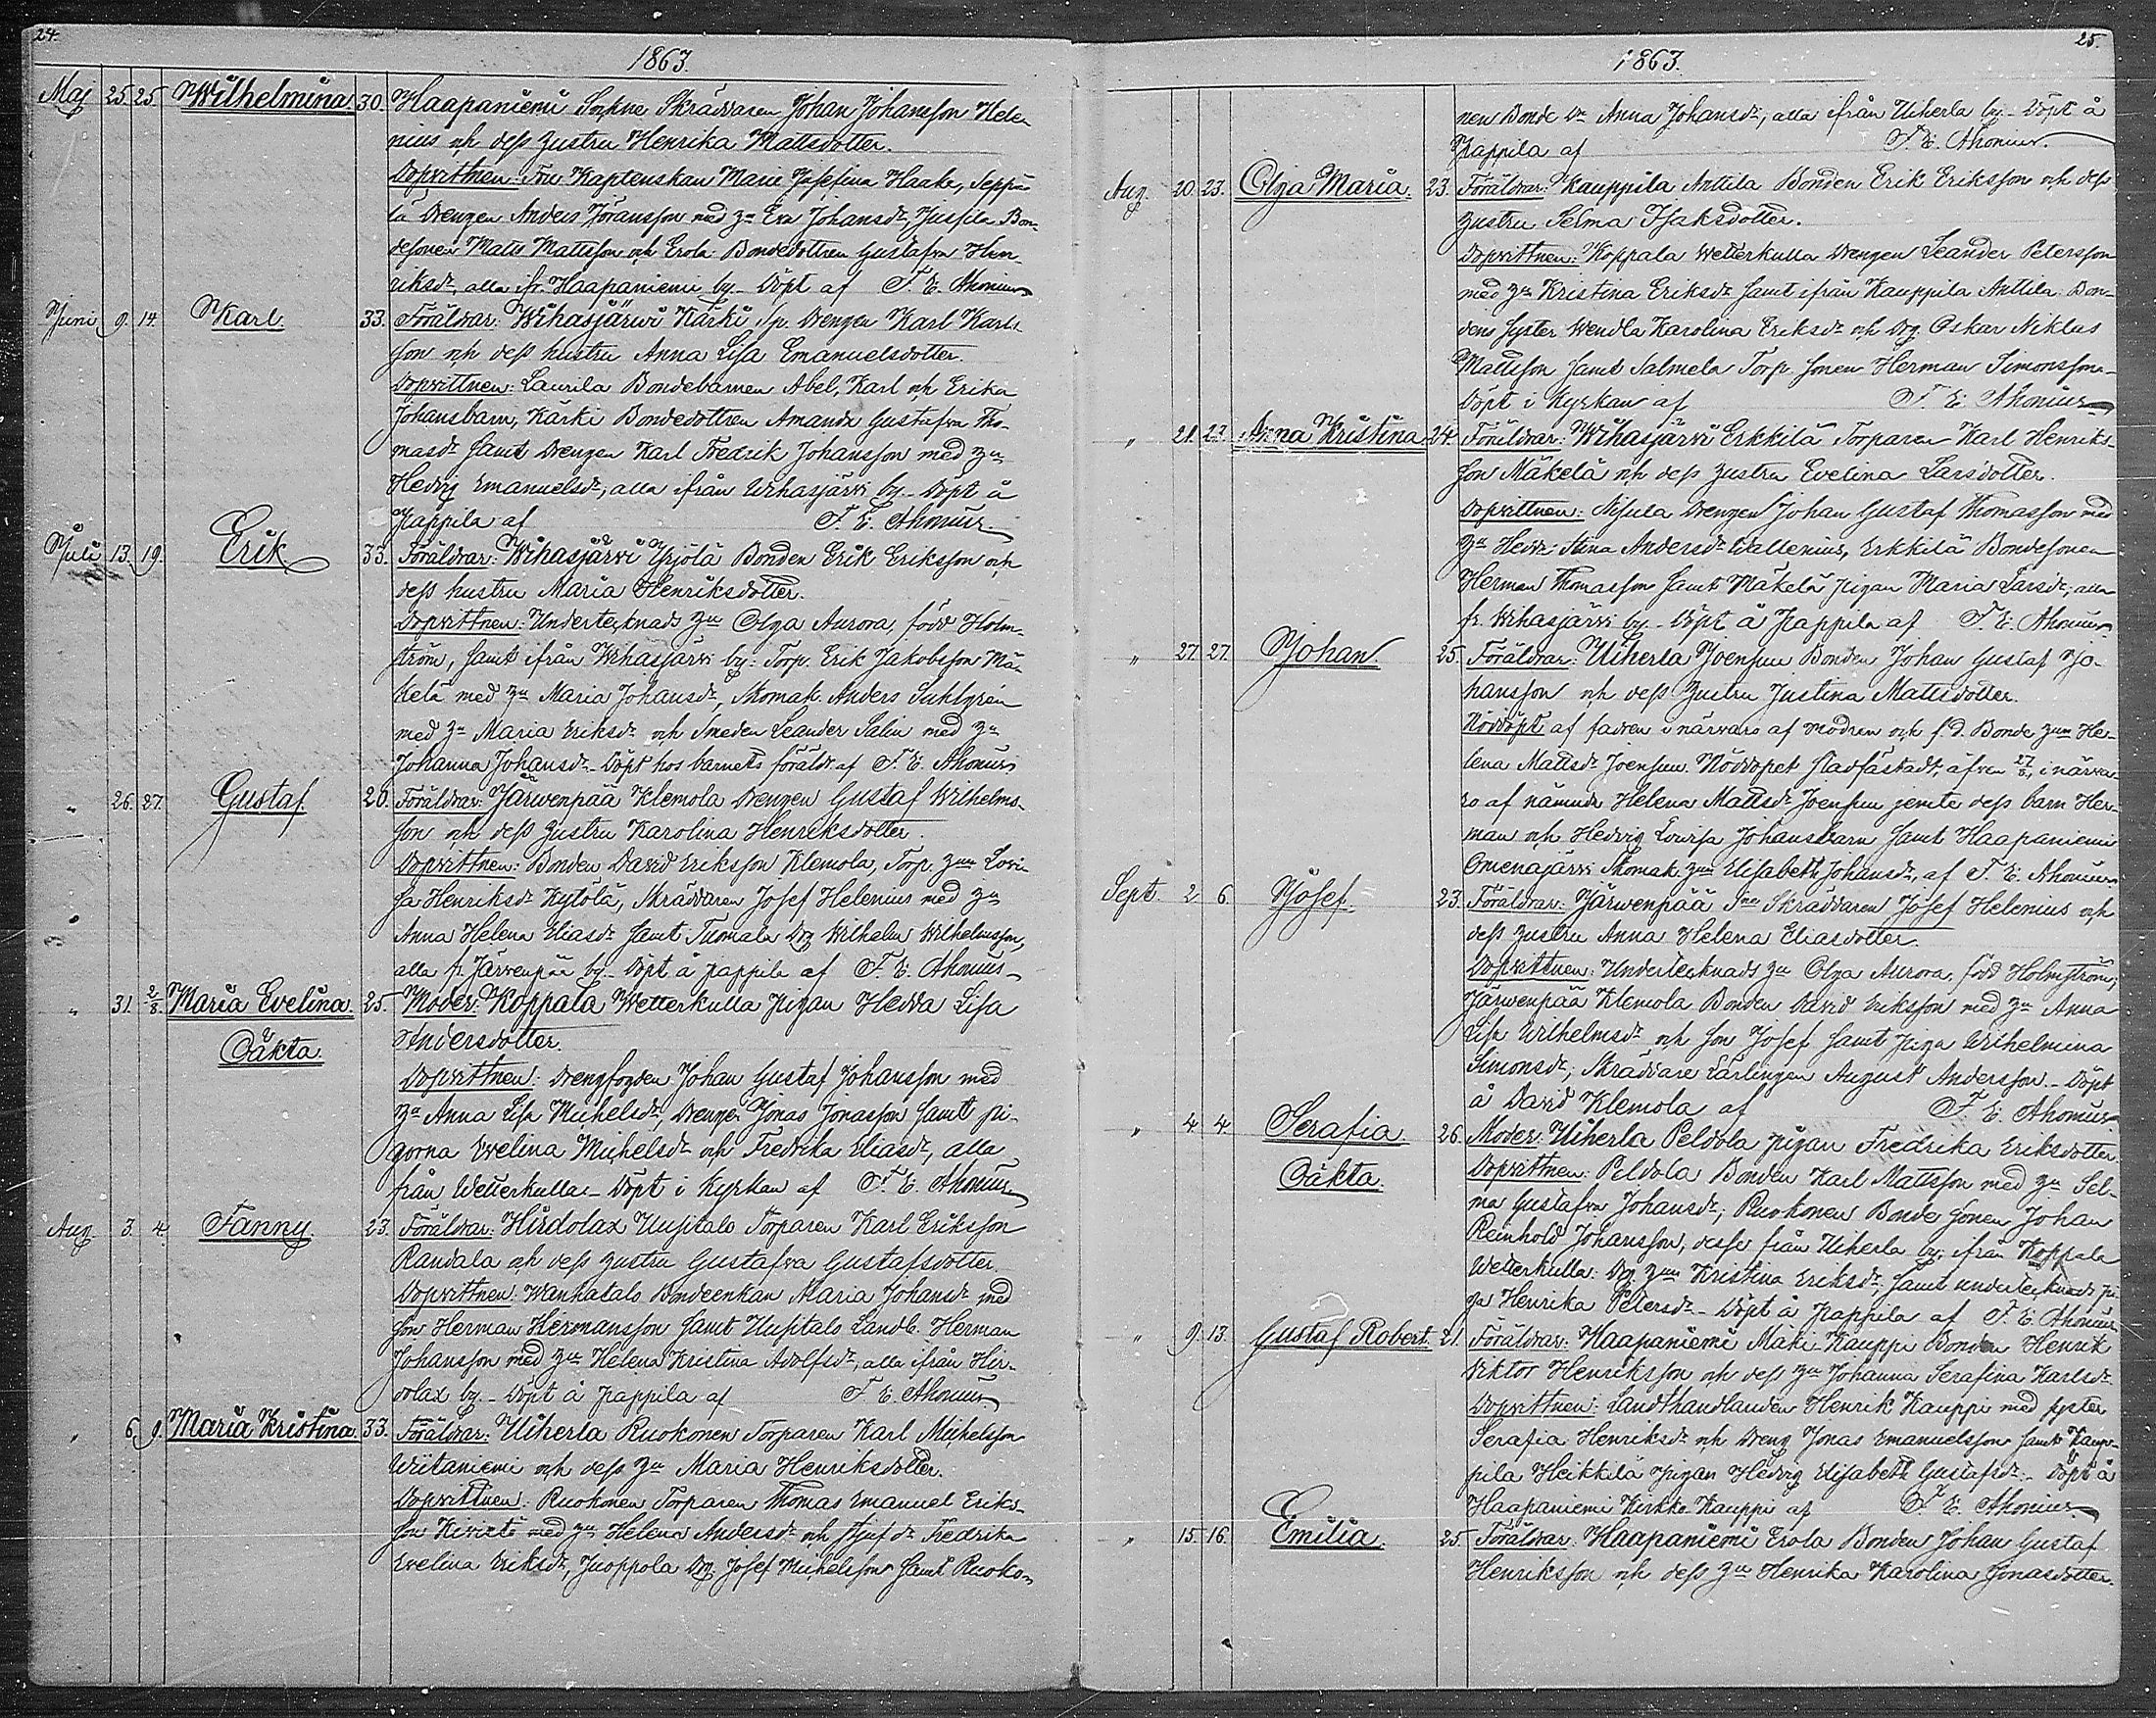 24.
1863.
Maj 25. 25 Wilhelmina 30. Haapaniemi Sockne Skräddaren Johan Johansson Hele-
nius och dess hustru Henrika Mattsdotter.
Dopvittnen: Fru Kaptenskan Marie Josefina Haake, Seppä-
lä Drengen Anders Göransson med hu Eva Johansdr, Jussila Bon-
desonen Mats Mattsson och Erola Bondedottren Gustafva Hen-
riksdr, alla fr. Haapaniemi by. Döpt af F. E. Ahonius
Juni 9. 14. Karl. 33. Föräldrar: Wihasjärwi Kärki Sp. Drengen Karl Karls-
son och dess hustru Anna Lisa Emanuelsdotter.
Dopvittnen: Laurila Bondebarnen Abel, Karl och Erika
Johansbarn, Kärki Bondedottren Amanda Gustafva Tho-
masdr samt Drengen Karl Fredrik Johansson med hu
Hedvig Emanuelsdr, alla ifrån Wihasjärvi by. Döpt å
Pappila af F. E. Ahonius.
Juli 13. 19. Erik 33. Föräldrar: Wihasjärwi Yrjölä Bonden Erik Eriksson och
dess hustru Maria Henriksdotter.
Dopvittnen: Undertecknads hu Olga Aurora, född Holm-
ström, samt ifrån Wihasjärvi by: Torp. Erik Jakobsson Mä-
kelä med hu Maria Johansdr, Skomak. Anders Suhlgrén
med hu Maria Eriksdr och Smeden Leander Salin med hu
Johanna Johansdr. Döpt hos barnets föräldr. af F. E. Ahonius
" 26. 27. Gustaf 20. Föräldrar: Järwenpää Klemola Drengen Gustaf Wilhelms-
son och dess hustru Karolina Henriksdotter.
Dopvittnen: Bonden David Eriksson Klemola, Torp. hun Lovi-
sa Henriksdr Kytölä, Skräddaren Josef Helenius med hu
Anna Helena Eliasdr samt Tuomala Drg Wilhelm Wilhelmsson,
alla fr. Järvenpää by. Döpt å Pappila af F. E. Ahonius
" 31. 2/8. Maria Evelina. 25. Moder: Koppala Wetterkulla Pigan Hedda Lisa
Oäkta. Andersdotter.
Dopvittnen: Drengfogden Johan Gustaf Johansson med
hu Anna Lisa Michelsdr, Drengen Jonas Jonasson samt pi-
gorna Evelina Michelsdr och Fredrika Eliasdr, alla
från Wetterkulla. Döpt i Kyrkan af F. E. Ahonius
Aug. 3. 4. Fanny. 23. Föräldrar: Hirdolax Uusitalo Torparen Karl Eriksson
Randala och dess hustru Gustafva Gustafsdotter.
Dopvittnen: Wanhatalo Bondeenkan Maria Johansdr med
son Herman Hermansson samt Uusitalo Landb. Herman
Johansson med hu Helena Kristina Adolfsdr, alla ifrån Hir-
dolax by. Döpt å Pappila af F. E. Ahonius
" 6. 9. Maria Kristina. 33. Föräldrar: Uiherla Ruokonen Torparen Karl Michelsson
Wiitaniemi och dess hu Maria Henriksdotter.
Dopvittnen: Ruokonen Torparen Thomas Emanuel Eriks-
son med hu Helena Andersdr och Fredrika
Evelina Eriksdr, Juoppola Drg. Josef Michelsson samt Ruoko-
25.
1863.
nen Bonde Dr Anna Johansdr, alla ifrån Uiherla by. Döpt å
Pappila af F. E. Ahonius.
Aug. 20. 23. Olga Maria. 23. Föräldrar: Kauppila Anttila Bonden Erik Eriksson och dess
hustru Selma Isaksdotter.
Dopvittnen: Koppala Wetterkulla Drengen Leander Petersson
med hu Kristina Eriksdr samt ifrån Kauppila Anttila: Bon-
dens syster Wendla Karolina Eriksdr och Drg. Oskar Niklas
Mattsson samt Salmela Torp. sonen Herman Simonsson.
Döpt i Kyrkan af F. E. Ahonius
" 21. 23. Anna Kristina 24. Föräldrar: Wihasjärwi Erkkilä Torparen Karl Henriks-
son Mäkelä och dess hustru Evelina Larsdotter.
Dopvittnen: Nisula Drengen Johan Gustaf Thomasson med
hu Hedv: Stina Andersdr Wallenius, Erkkilä Bondesonen
Herman Thomasson samt Mäkelä Pigan Maria Larsdr, alla
fr. Wihasjärvi by. Döpt å Pappila af F. E. Ahonius.
" 27. 27. Johan 25. Föräldrar: Uiherla Joensuu Bonden Johan Gustaf Jo-
hansson och dess hustru Justina Mattsdotter.
Nöddöpt af fadren i närvaro af modren och f. d. Bonde hun He-
lena Mattsdr Joensuu. Nöddopet stadfästadt, äfven 27/8, i närva-
ro af nämnda Helena Mattsdr Joensuu jemte dess barn Her-
man och Hedvig Lovisa Johansbarn samt Haapaniemi
Omenajärvi Skomak. hun Elisabeth Johansdr, af F. E. Ahonius
Sept. 2 6. Josef 23. Föräldrar: Järwenpää Sne Skräddaren Josef Helenius och
dess hustru Anna Helena Eliasdotter.
Dopvittnen: Undertecknads hu Olga Aurora, född Holmström,
Järwenpää Klemola Bonden David Eriksson med hu Anna
Lisa Wilhelmsdr och son Josef samt piga Wilhelmina
Simonsdr, Skräddare Lärlingen August Andersson. Döpt
å David Klemola af F. E. Ahonius
" 4 4. Serafia. 26. Moder: Uiherla Peldola Pigan Fredrika Eriksdotter.
Oäkta. Dopvittnen: Peldola Bonden Karl Mattsson med hu Sel-
ma Gustafva Johansdr, Ruokonen Bonde sonen Johan
Reinhold Johansson, desse från Uiherla by; ifrån Koppala
Wetterkulla: Drg. hun Kristina Eriksdr, samt undertecknads pi-
ga Henrika Petersdr. Döpt å Pappila af F. E. Ahonius
" 9. 13. Gustaf Robert. 21. Föräldrar: Haapaniemi Mäki-Kauppi Bonden Henrik
Viktor Henriksson och dess hu Johanna Serafina Karlsdr.
Dopvittnen: Landthandlanden Henrik Kauppi med syster
Serafia Henriksdr och Dreng Jonas Emanuelsson samt Kaup-
pila Heikkilä Pigan Hedvig Elisabeth Gustafsdr. Döpt å
Haapaniemi Kirkko-Kauppi af F. E. Ahonius
" 15. 16. Emilia. 25. Föräldrar: Haapaniemi Erola Bonden Johan Gustaf
Henriksson och dess hu Henrika Karolina Jonasdotter.